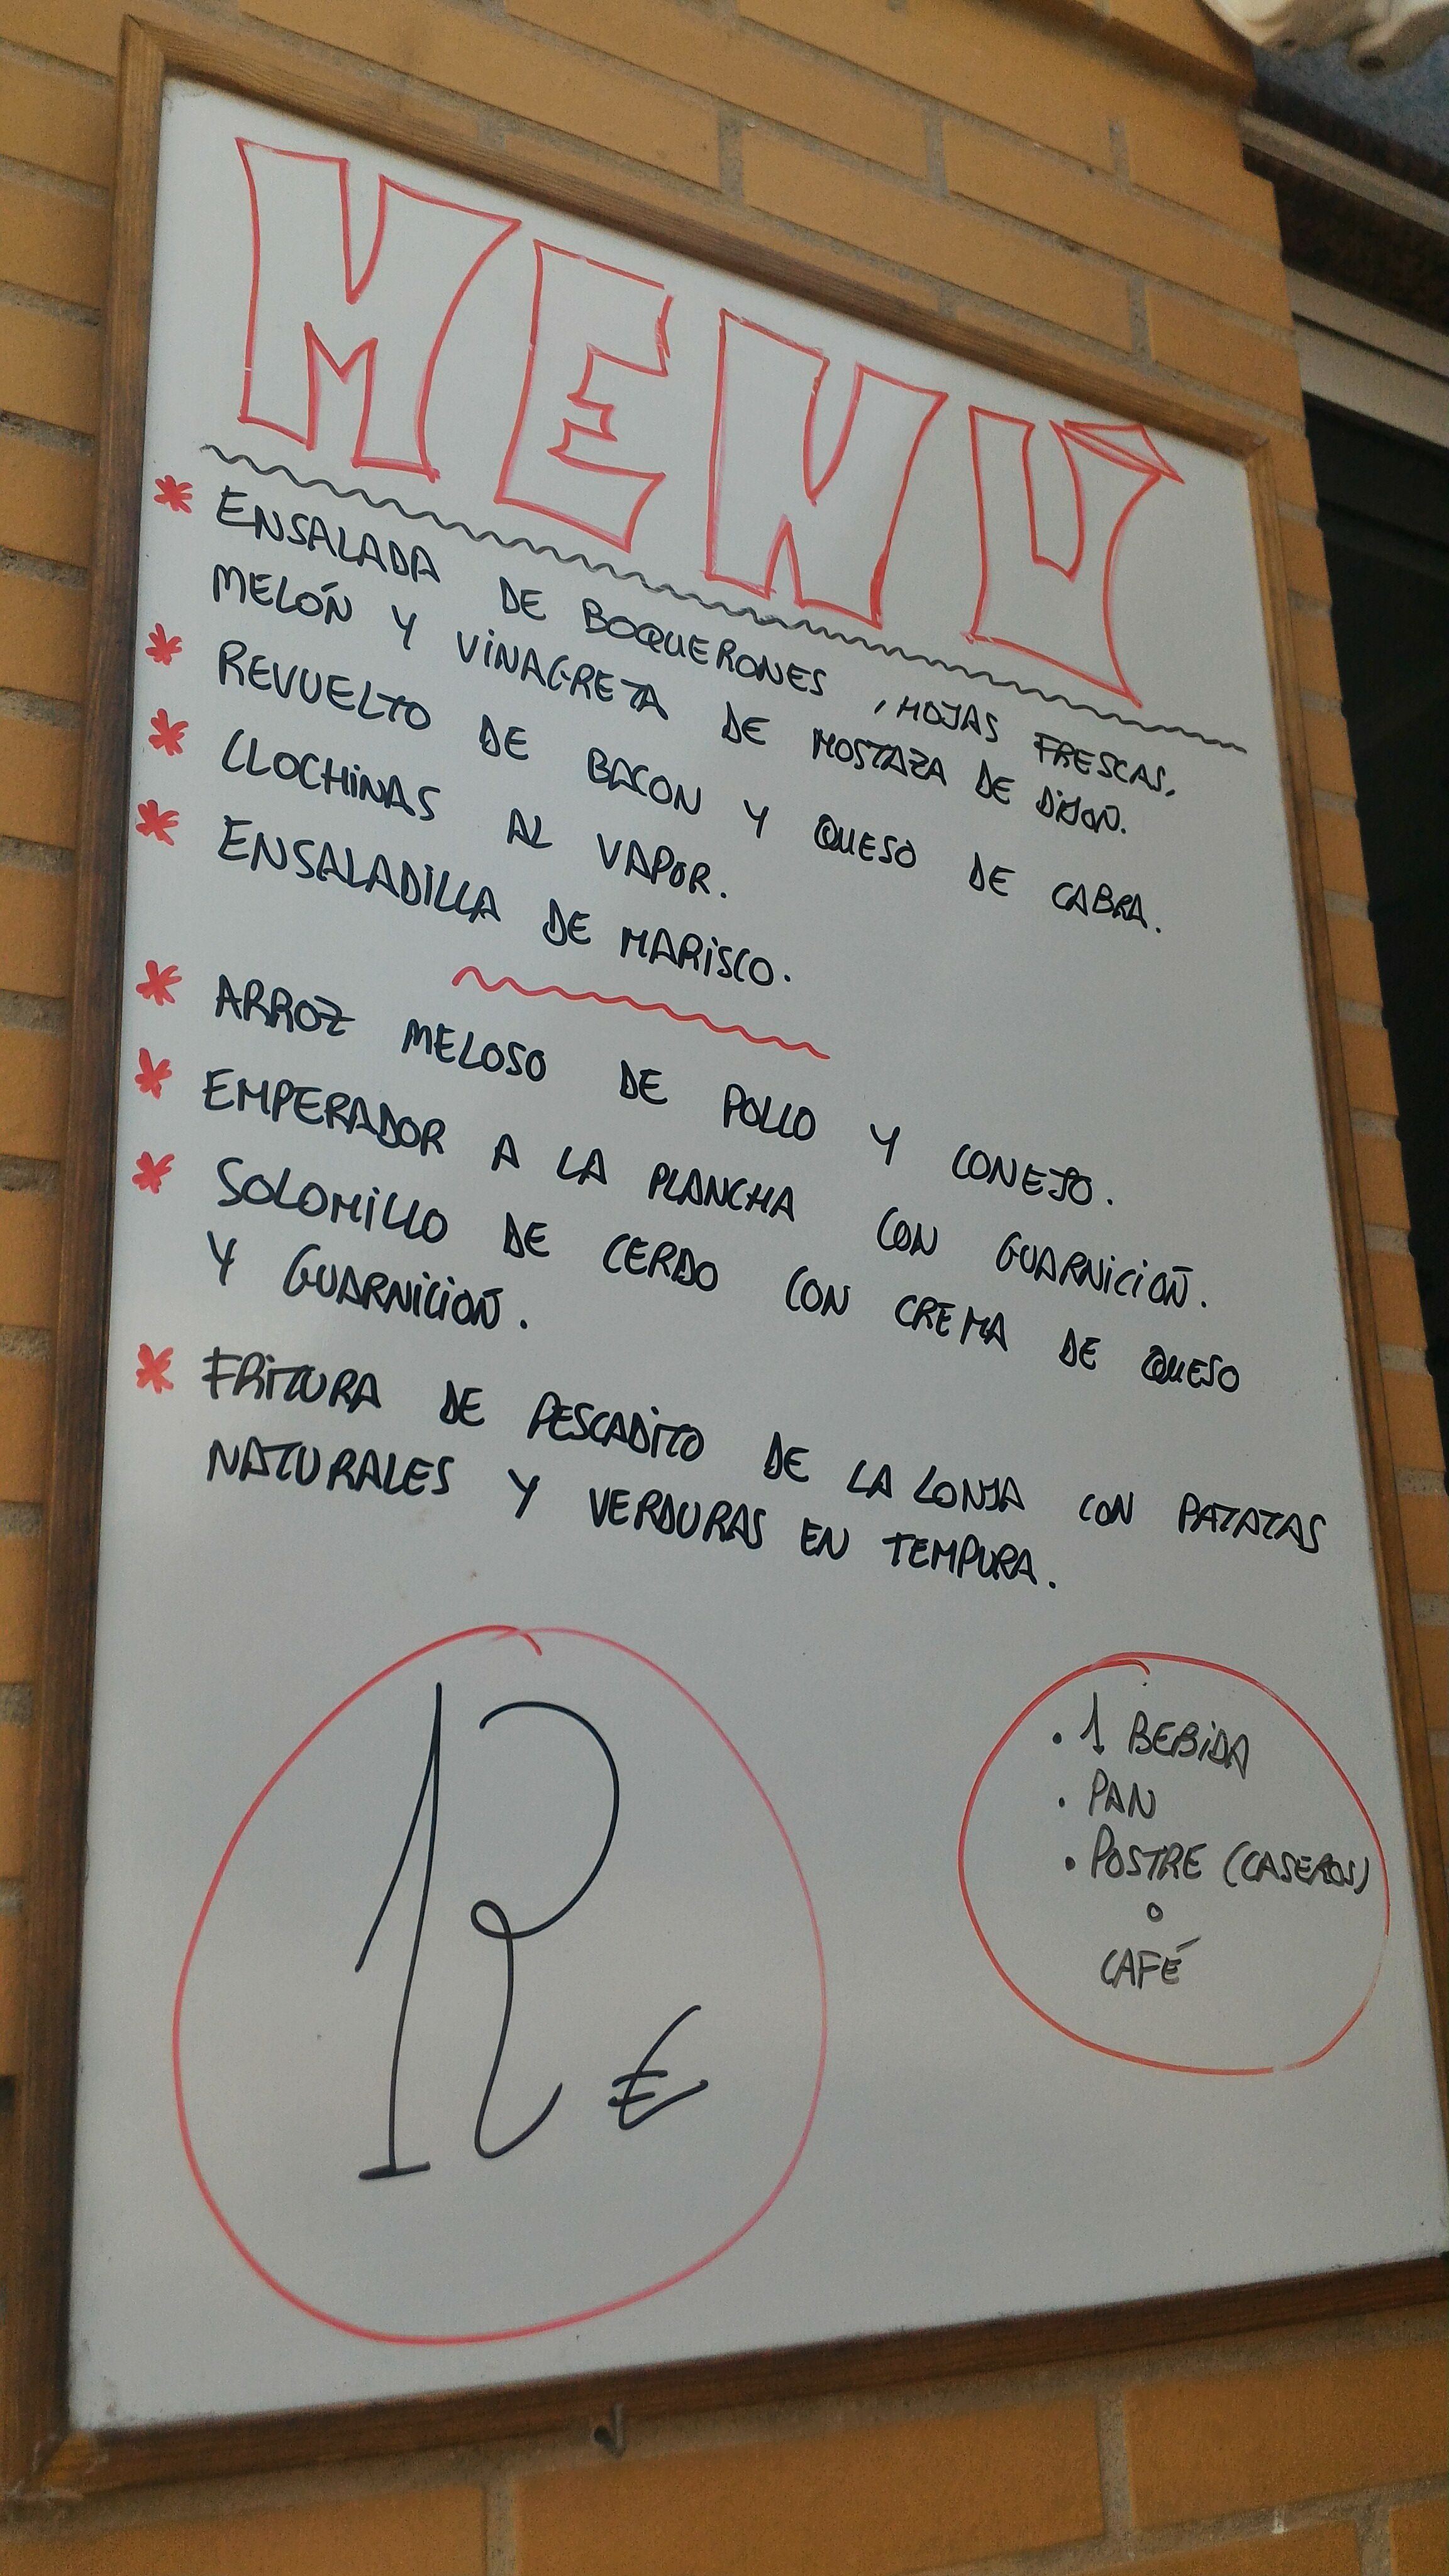 MENÚ
* ENSALADA DE BOQUERONES, HOJAS FRESCAS,
MELÓN Y VINAGRETA DE MOSTAZA DE DIJON.
* REVUELTO DE BACON Y QUESO DE CABRA.
* CLOCHINAS AL VAPOR.
* ENSALADILLA DE MARISCO.
* ARROZ MELOSO DE POLLO Y CONEJO.
* EMPERADOR A LA PLANCHA CON GUARNICIÓN.
* SOLOMILLO DE CERDO CON CREMA DE QUESO
Y GUARNICIÓN.
* FRITURA DE PESCADITO DE LA LONJA CON PATATAS
NATURALES Y VERDURAS EN TEMPURA.
12 €
· 1 BEBIDA
· PAN
· POSTRE (CASEROS)
o
CAFÉ